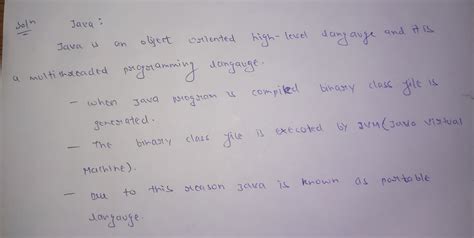 Soln Java :
Java is an object oriented high-level langauge and it is
a multithreaded programming langauge.
- when Java program is compiled binary class file is
generated.
- The binary class file is executed by JVM (Java Virtual
Machine).
- Due to this reason Java is known as portable
langauge.